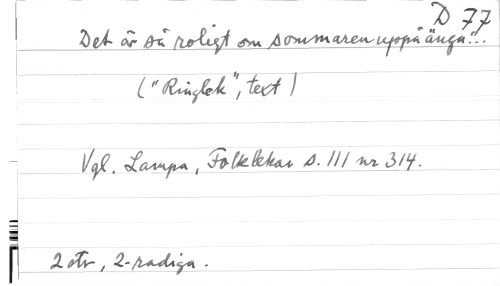 D 77
Det är så roligt om sommaren uppå änga...
("Ringlek", text)
Vgl. Lampa, Folklekar s. 111 nr 314.
2 str, 2-radiga.